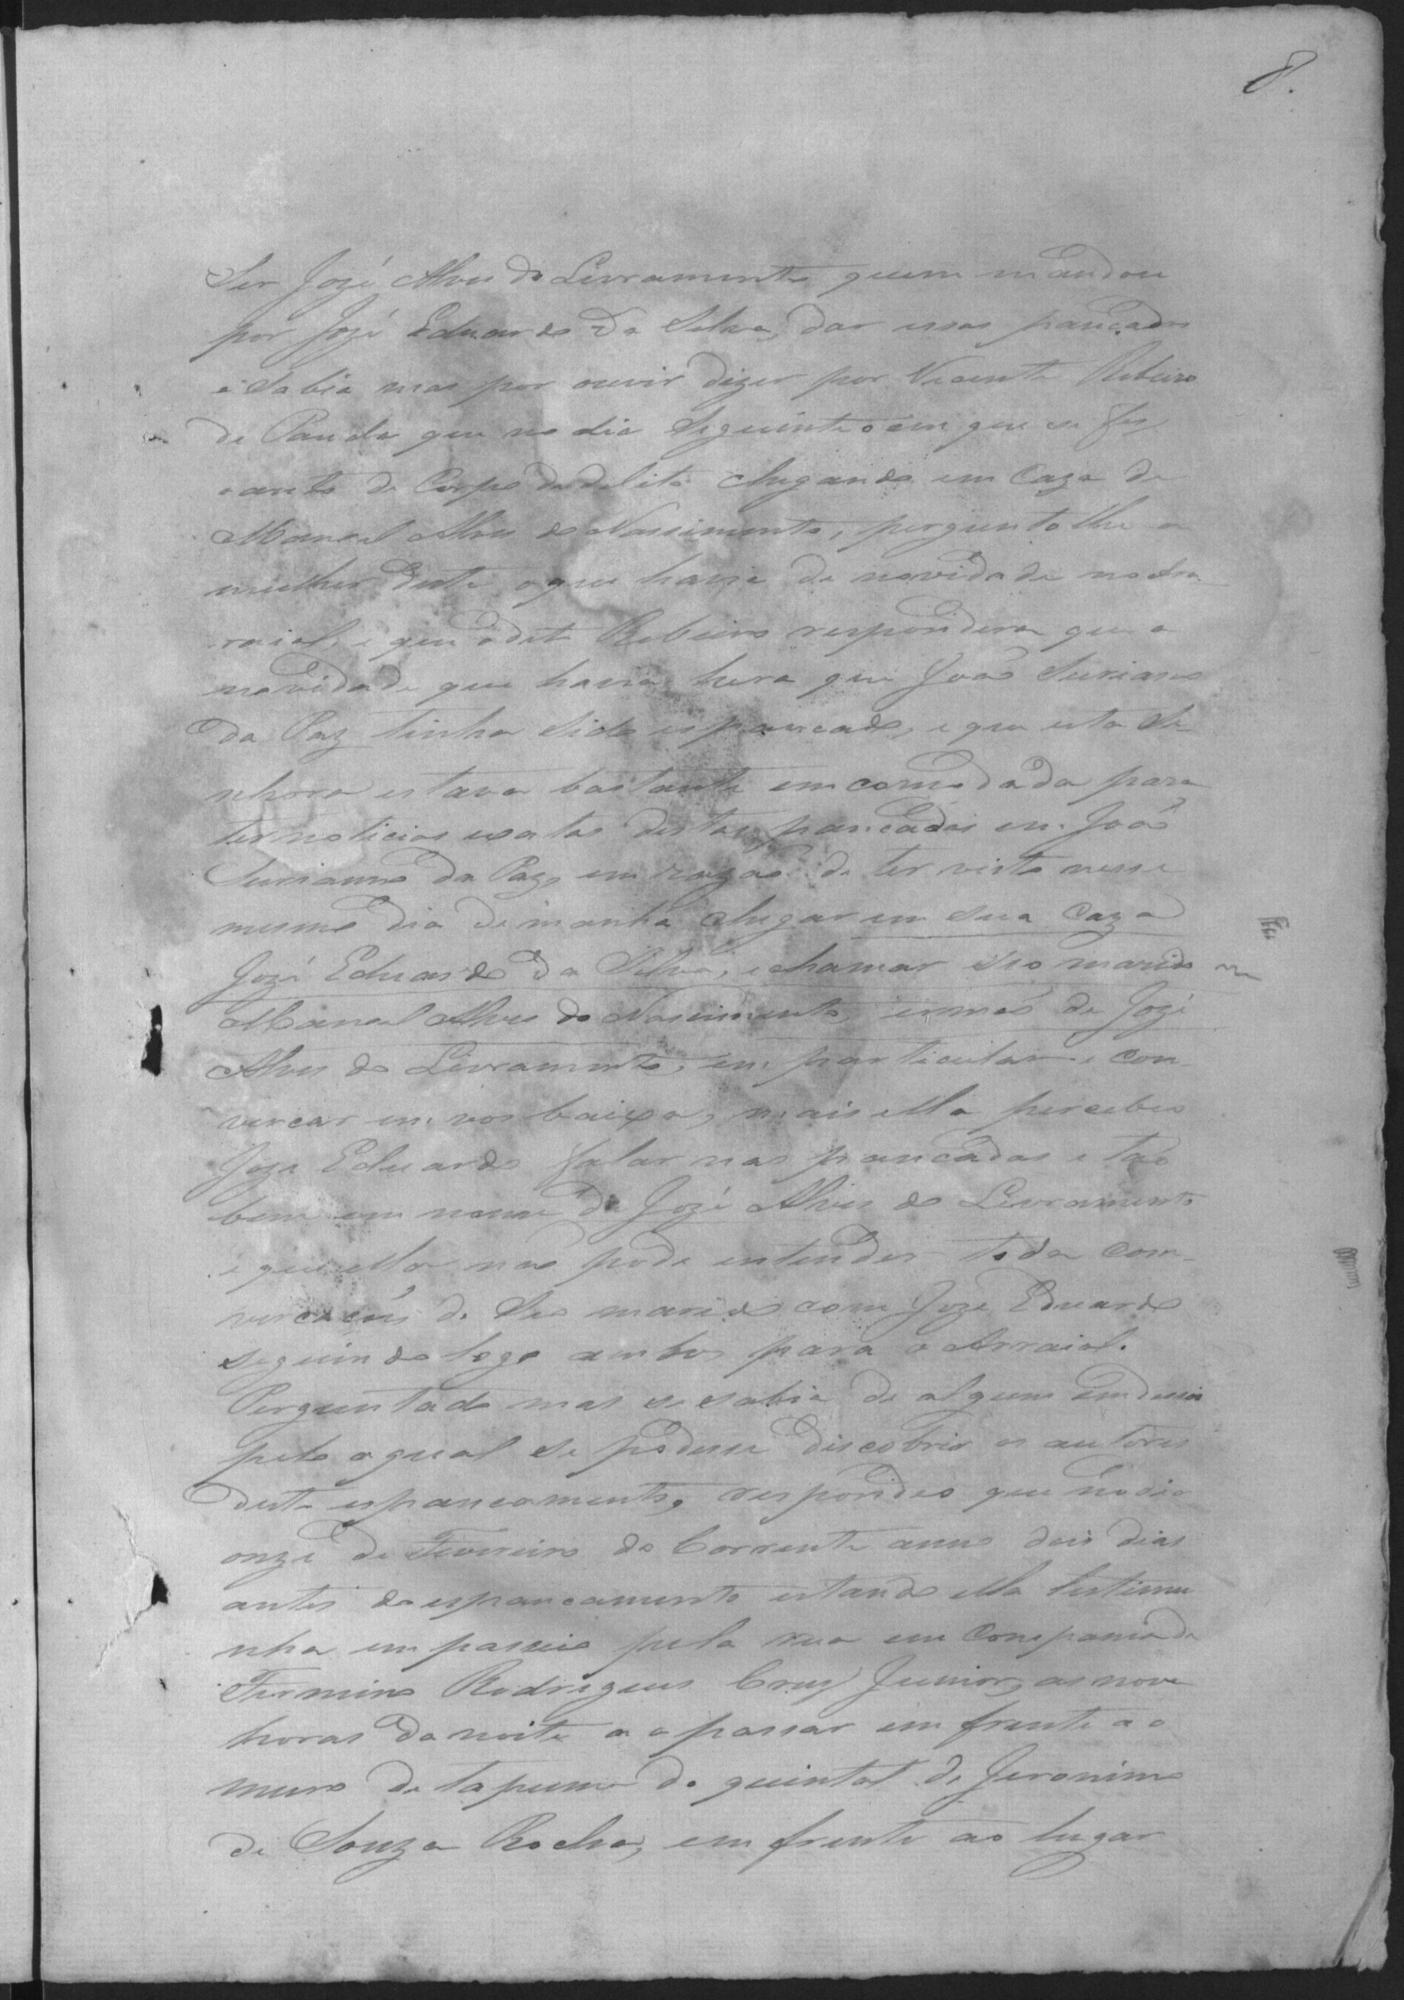 8.
Ser Jozé Alves do Livramento quem mandou
por Jozé Eduardo da Silva, dar essas pancadas
e sabia mas por ouvir dizer por Vicente Ribeiro
de Paula que no dia seguinte o em que se fes
oauto de Corpo de delito chegando em Caza de
Manoel Alves do Nascimento, perguntolhe a
mulher deste oque havia de novidade no Ar
raial, e que odito Ribeiro respondera que a
novidade que havia hera que João Suriano
da Paz tinha sido espancado, e que esta Se
nhora estava bastante emcomodada para
ter noticias exatas destas pancadas em João
Surianno da Paz, em razão de ter visto nesse
mesmo dia de manha chegar em sua Caza
Jozé Eduardo da Silva, e chamar seo marido
Manoel Alves do Nascimento irmão de Jozé
Alves do Livramento, em particular e con
vercar em vos baixa, mais ella percebeo
Joze Eduardo falar nas pancadas e tão
bem em nome de Jozé Alves do Livramento
e que ella não pode entender toda com
vercação de Seo marido com Joze Eduardo
seguindo logo ambos para o Arraial.
Perguntado mas se sabia de algum endicio
pelo oqual se podesse discobrir os autores
deste espancamento, respondeo que no dia
onze de Fevereiro do Corrente anno dois dias
antes do espancamento estando ella testimu
nha em passeio pela rua em Companha de
Firmino Rodrigues Cruz Junior, as nove
horas da noite ao passar em frente ao
muro de tapume do quintal de Jeronimo
de Souza Rocha, em frente ao lugar